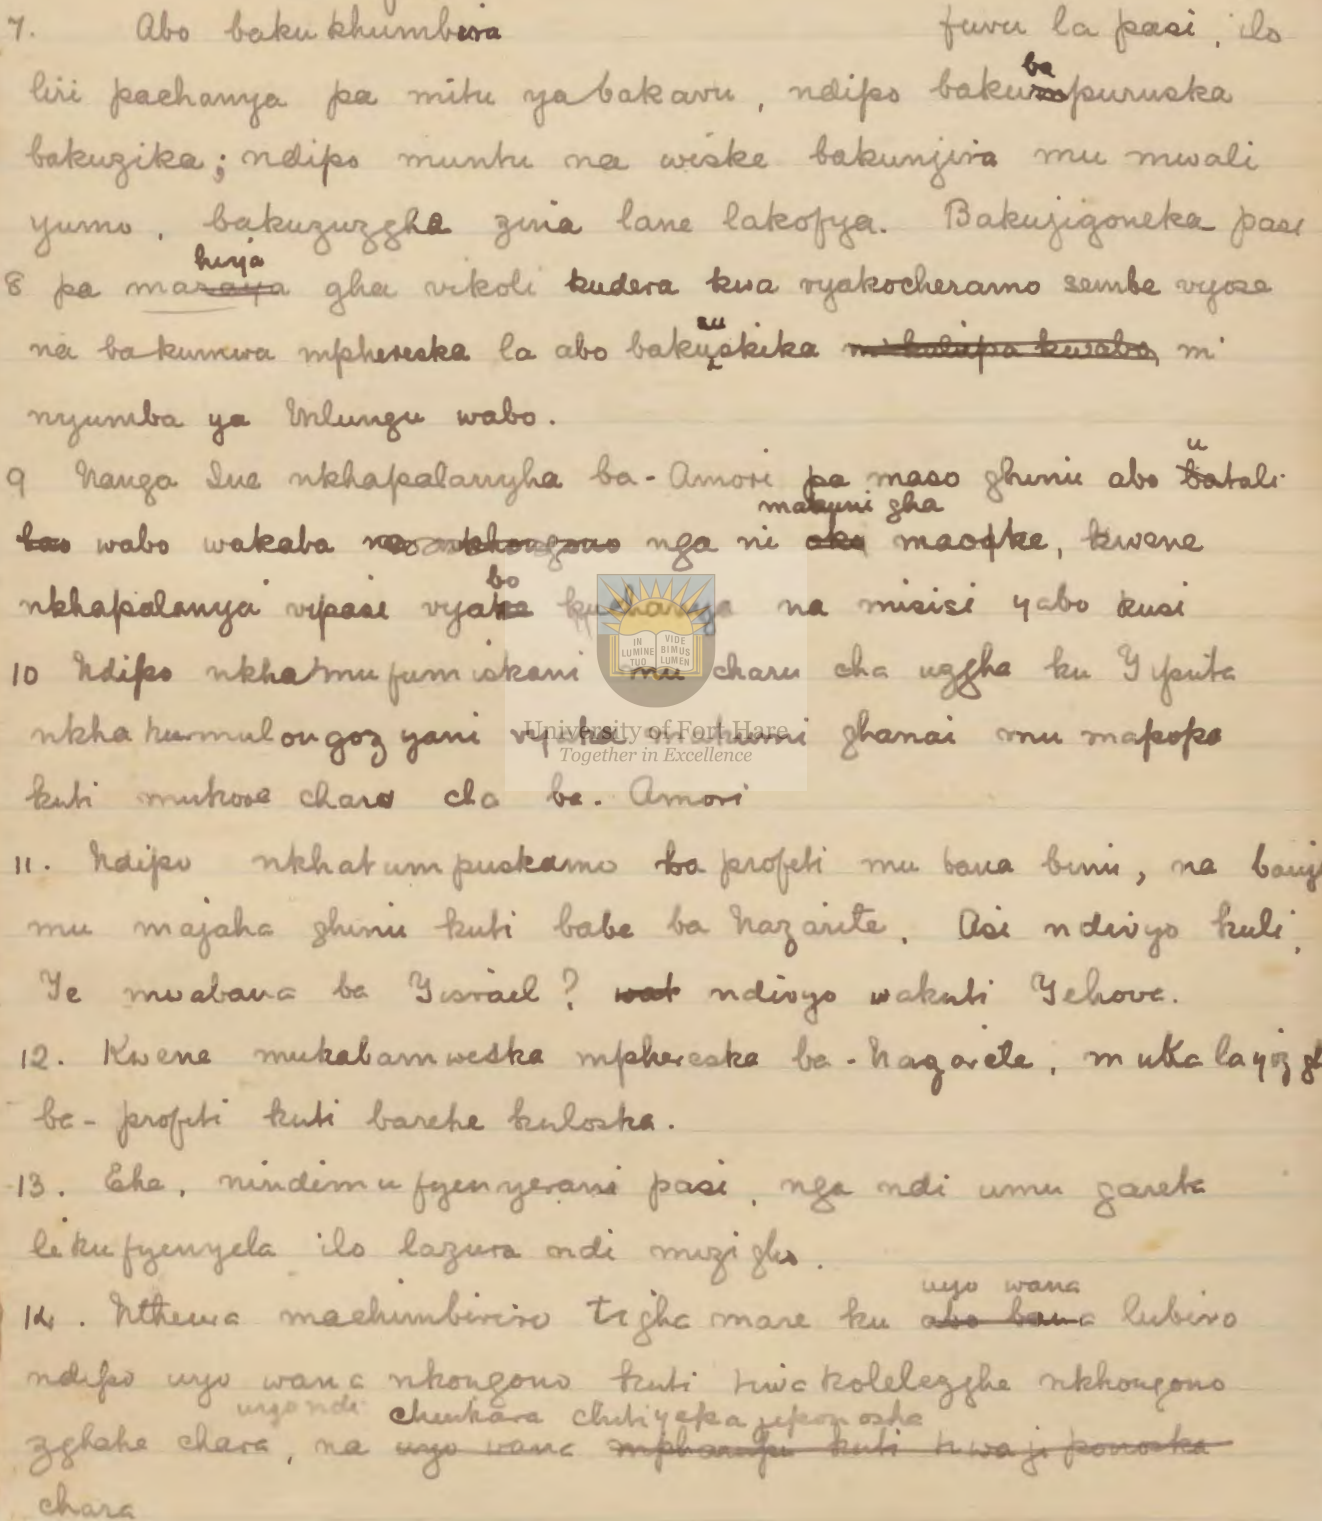 7. Abo bakukhumbira fuvu la pasi, ilo
liri pachanya pa mitu ya bakavu, ndipo bakubapuruska
bakuzika; ndipo muntu na wiske bakunjira mu mwali
yumo, bakuzuzgha zina lane lakofya. Bakujigoneka pasi
8 pa mahuja gha vikoli kudera kwa vyakocheramo sembe vyose
na bakumwa mphereska la abo bakususkika mu
nyumba ya Mlungu wabo.
9 Nanga Ine nkhapalanyha ba-Amori pa maso ghinu abo utali
wabo wakaba nga ni makuni gha maoqke, kwene
nkhapalanya vipasi vyabo kuchanya na misisi yabo kusi
10 Ndipo nkhamufumiskani mu charu cha uzgha ku Yiputa
nkhakumulongozyani vyaka makumi ghanai mu mapopo
kuti mukove charo cha ba-Amori
11. Ndipo nkhatumpuskamo ba profeti mu bana binu, na
mu majaha ghinu kuti babe ba Nazarite. Asi ndivyo kuli,
Ye mwabana ba Yisrael? ndivyo wakuti Yehova.
12. Kwene mukabamweska mphereska ba-Nazarite, mukalayizgh
ba-profeti kuti bareke kuloska.
13. Eha, nindimufyenyerani pasi, nga ndi umu gareta
likufyenyela ilo lazura ndi mizigho.
14. Nthewa machimbiriro tigha mare ku uyo wana lubiro
ndipo uyo wana nkongono kuti tiwakolelezghe nkhongono
zghake chara, na uyo ndi chinkara chitiyepa jiponoska
chara
University of Fort Hare
Together in Excellence
IN LUMINE TUO VIDE BIMUS LUMEN